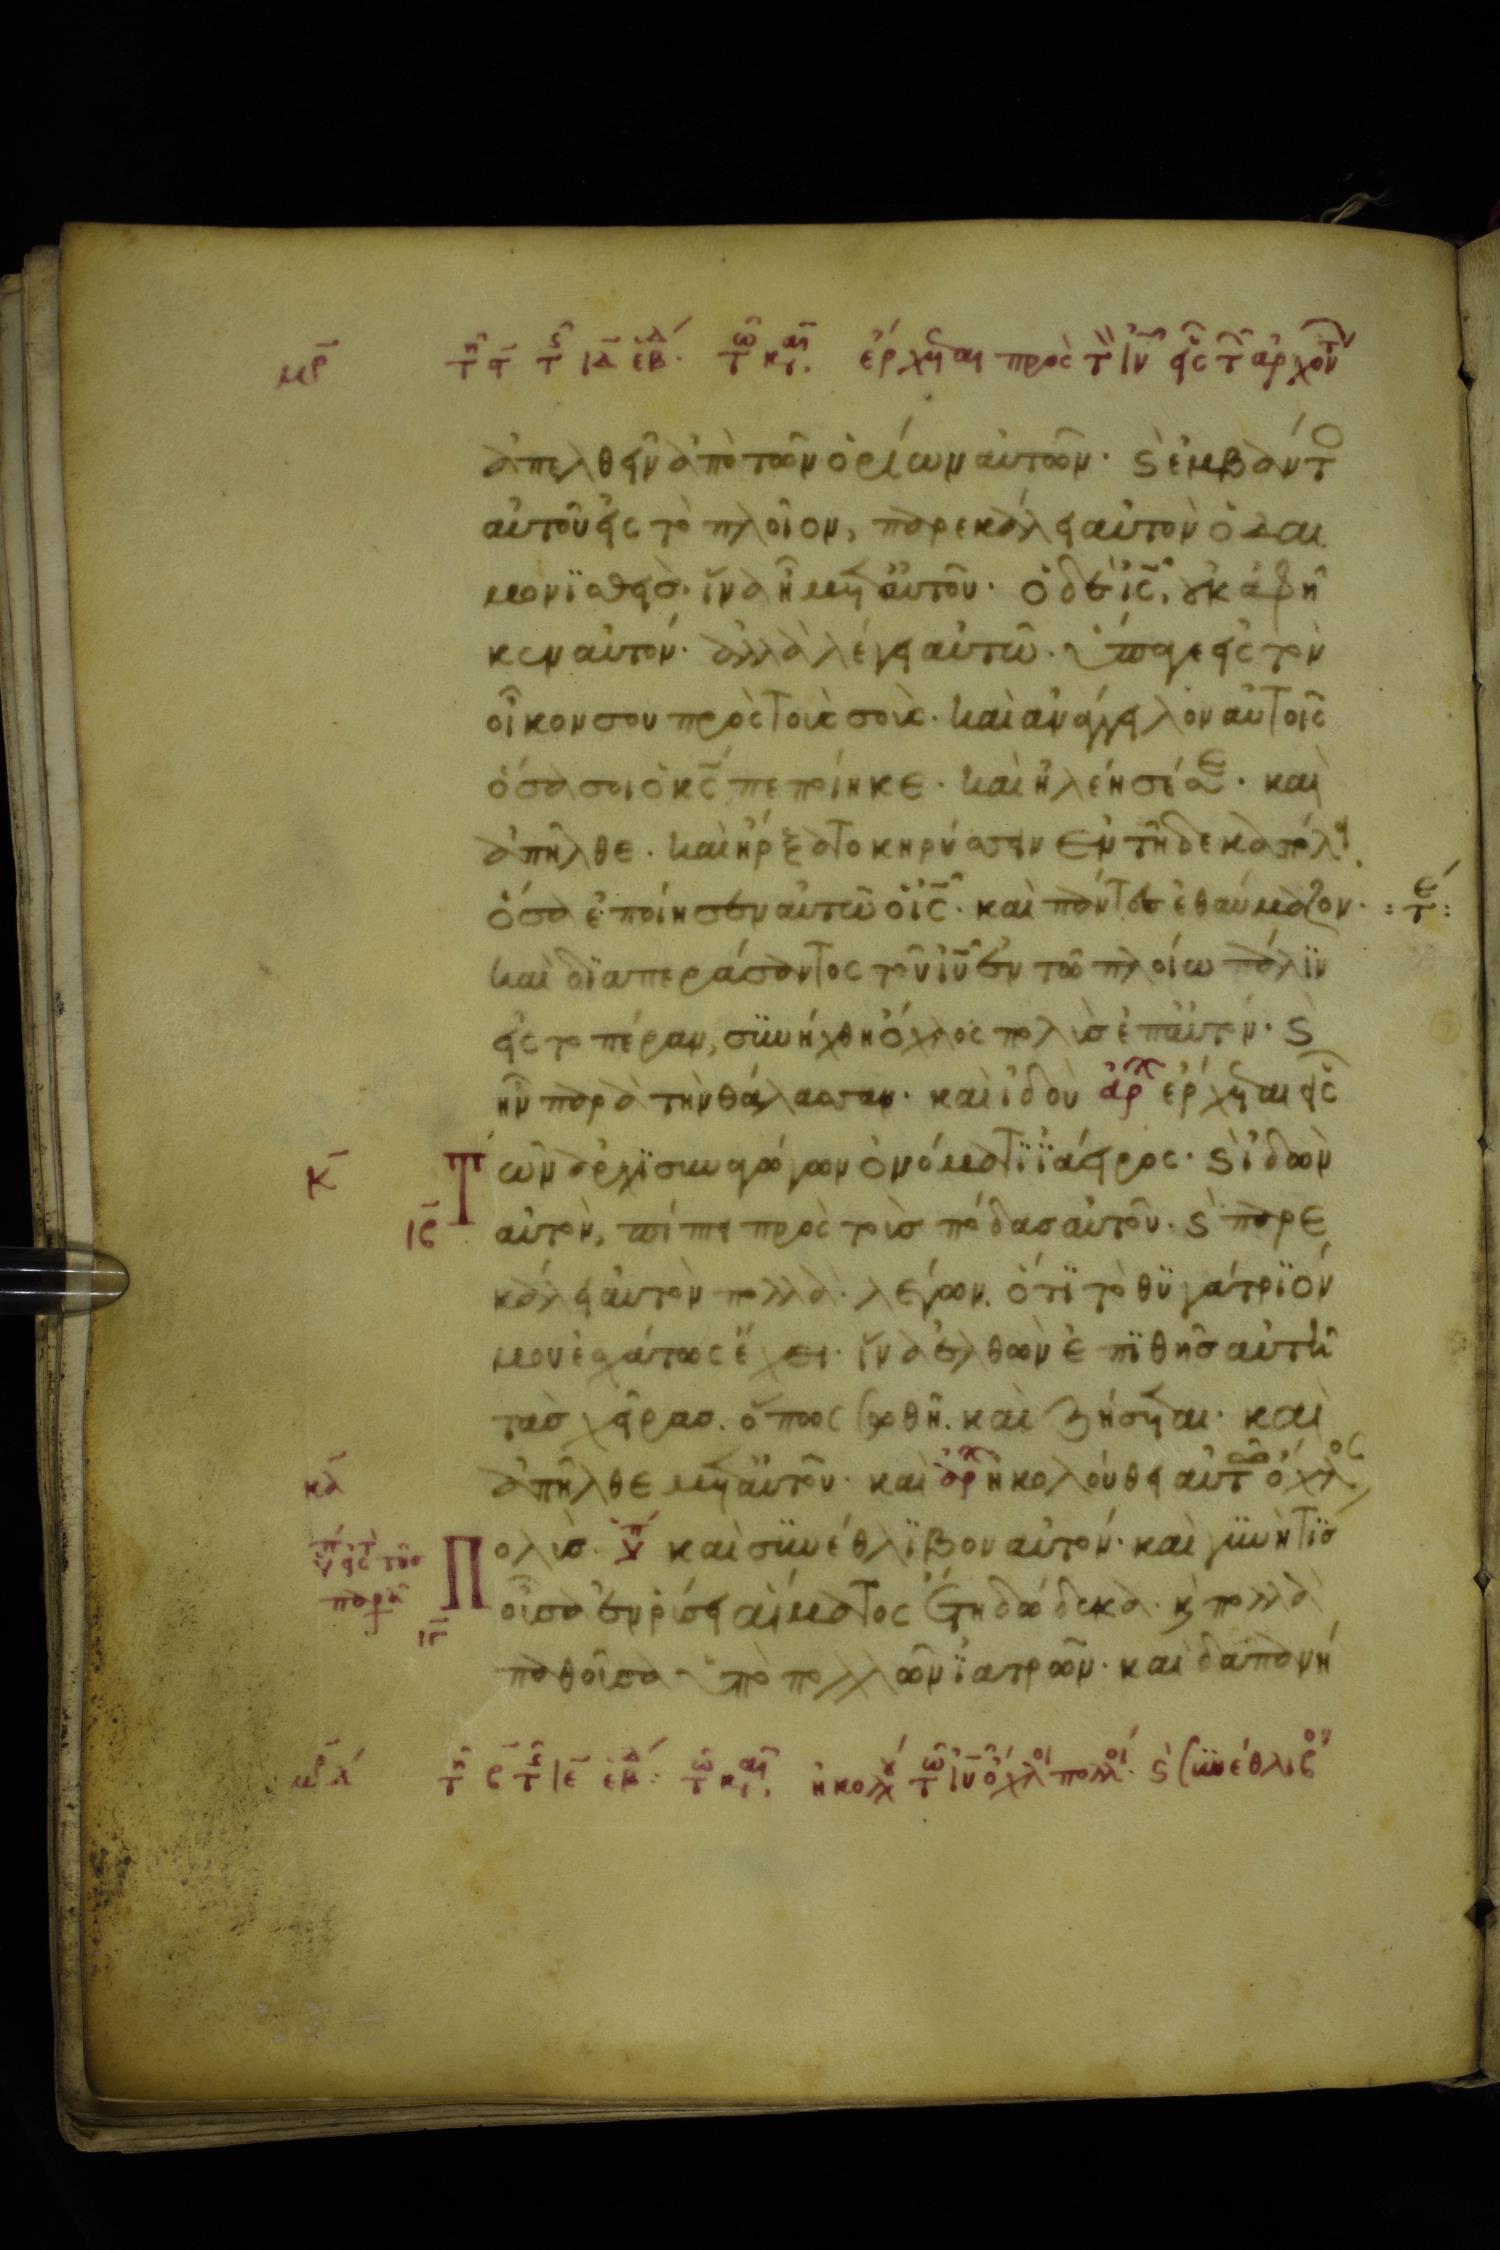 τῆ ϛ τῆς ιδ ἑβδ. τῷ καιρ. ἔρχεται πρὸς τὸν ιν εἷς τῶν ἀρχόντων
ἀπελθεῖν ἀπὸ τῶν ὁρίων αὐτῶν· ϛ ἐμβάντο
αὐτοῦ εἰς τὸ πλοῖον, παρεκάλει αὐτὸν ὁ δαι
μονϊσθεὶσ. ἵνα ἦ μετ αὐτοῦ· ὁ δὲ ις, οὐκ ἀφῆ
κεν αὐτόν· ἀλλὰ λέγει αὐτῶ· ὕπαγε εἰς τὸν
οἶκον σου πρὸς τοὺς σούς· καὶ ἀνάγγειλον αὐτοῖς
ὅσα σοι ὁ κς πεποίηκε· καὶ ἠλέησέ σε· καὶ
ἀπῆλθε· καὶ ἤρξατο κηρύσσειν ἐν τῆ δεκαπόλει
ὅσα ἐποίησεν αὐτῶ ὁ ις· καὶ πάντες ἐθαύμαζον· : τε :
καὶ δϊαπεράσαντος τοῦ ιυ ἐν τῶ πλοίω πάλϊν
εἰς το πέραν, συνήχθη ὄχλος πολὺσ ἐπ αὐτόν· ϛ
ἦν παρὰ τὴν θάλασσαν· καὶ ἰδοὺ ἀρχ ἔρχεται εἷς
κ Τῶν ἀρχϊσυναγώγων ὀνόματϊ ϊάειρος· ϛ ἰδὼν
ιϛ αὐτὸν, πίπτει πρὸς τοὺσ πόδασ αὐτοῦ· ϛ παρε
κάλει αὐτὸν πολλὰ· λέγων. ὅτϊ τὸ θϋγάτρϊόν
μου ἐσχάτως ἔχει· ἵνα ἐλθὼν ἐπϊθῆσ αὐτῆ
τὰσ χεῖρασ. ὅπως σωθῆ. καὶ ζήσεται· καὶ
κα ἀπῆλθε μετ αὐτοῦ· καὶ ἀρχ ἠκολούθει αὐτῶ ὄχλος
Πολὺσ· καὶ συνέθλϊβον αὐτόν· καὶ γυνὴ τϊσ
οὖσα ἐν ῥύσει αἵματος ἔτη δώδεκα· κ πολλὰ
παθοῦσα ὑπὸ πολλῶν ϊατρῶν· καὶ δαπανή
τῆ ϛ τῆς ιε ἑβδ: τῷ καιρ. ἠκολού τῷ ιυ ὄχλοι πολλοί· ϛ συνέθλιβ